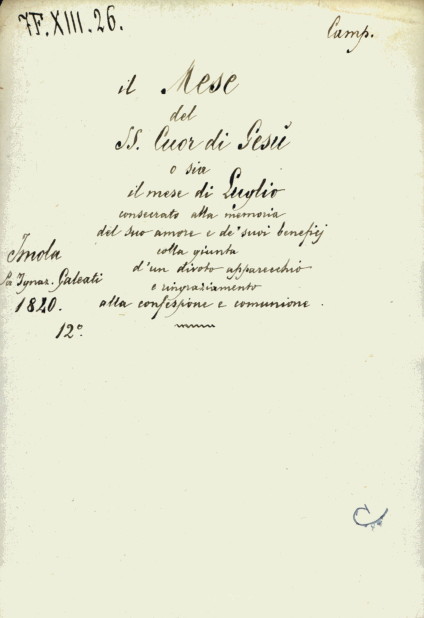 7F.XIII.26.
Camp.
il Mese
del
SS. Cuor di Gesù
o sia
il mese di Luglio
consecrato alla memoria
del suo amore e de' suoi beneficj
colla giunta
d'un divoto apparecchio
e ringraziamento
alla confessione e comunione.
Imola
Ignaz. Galeati
1820.
12°.